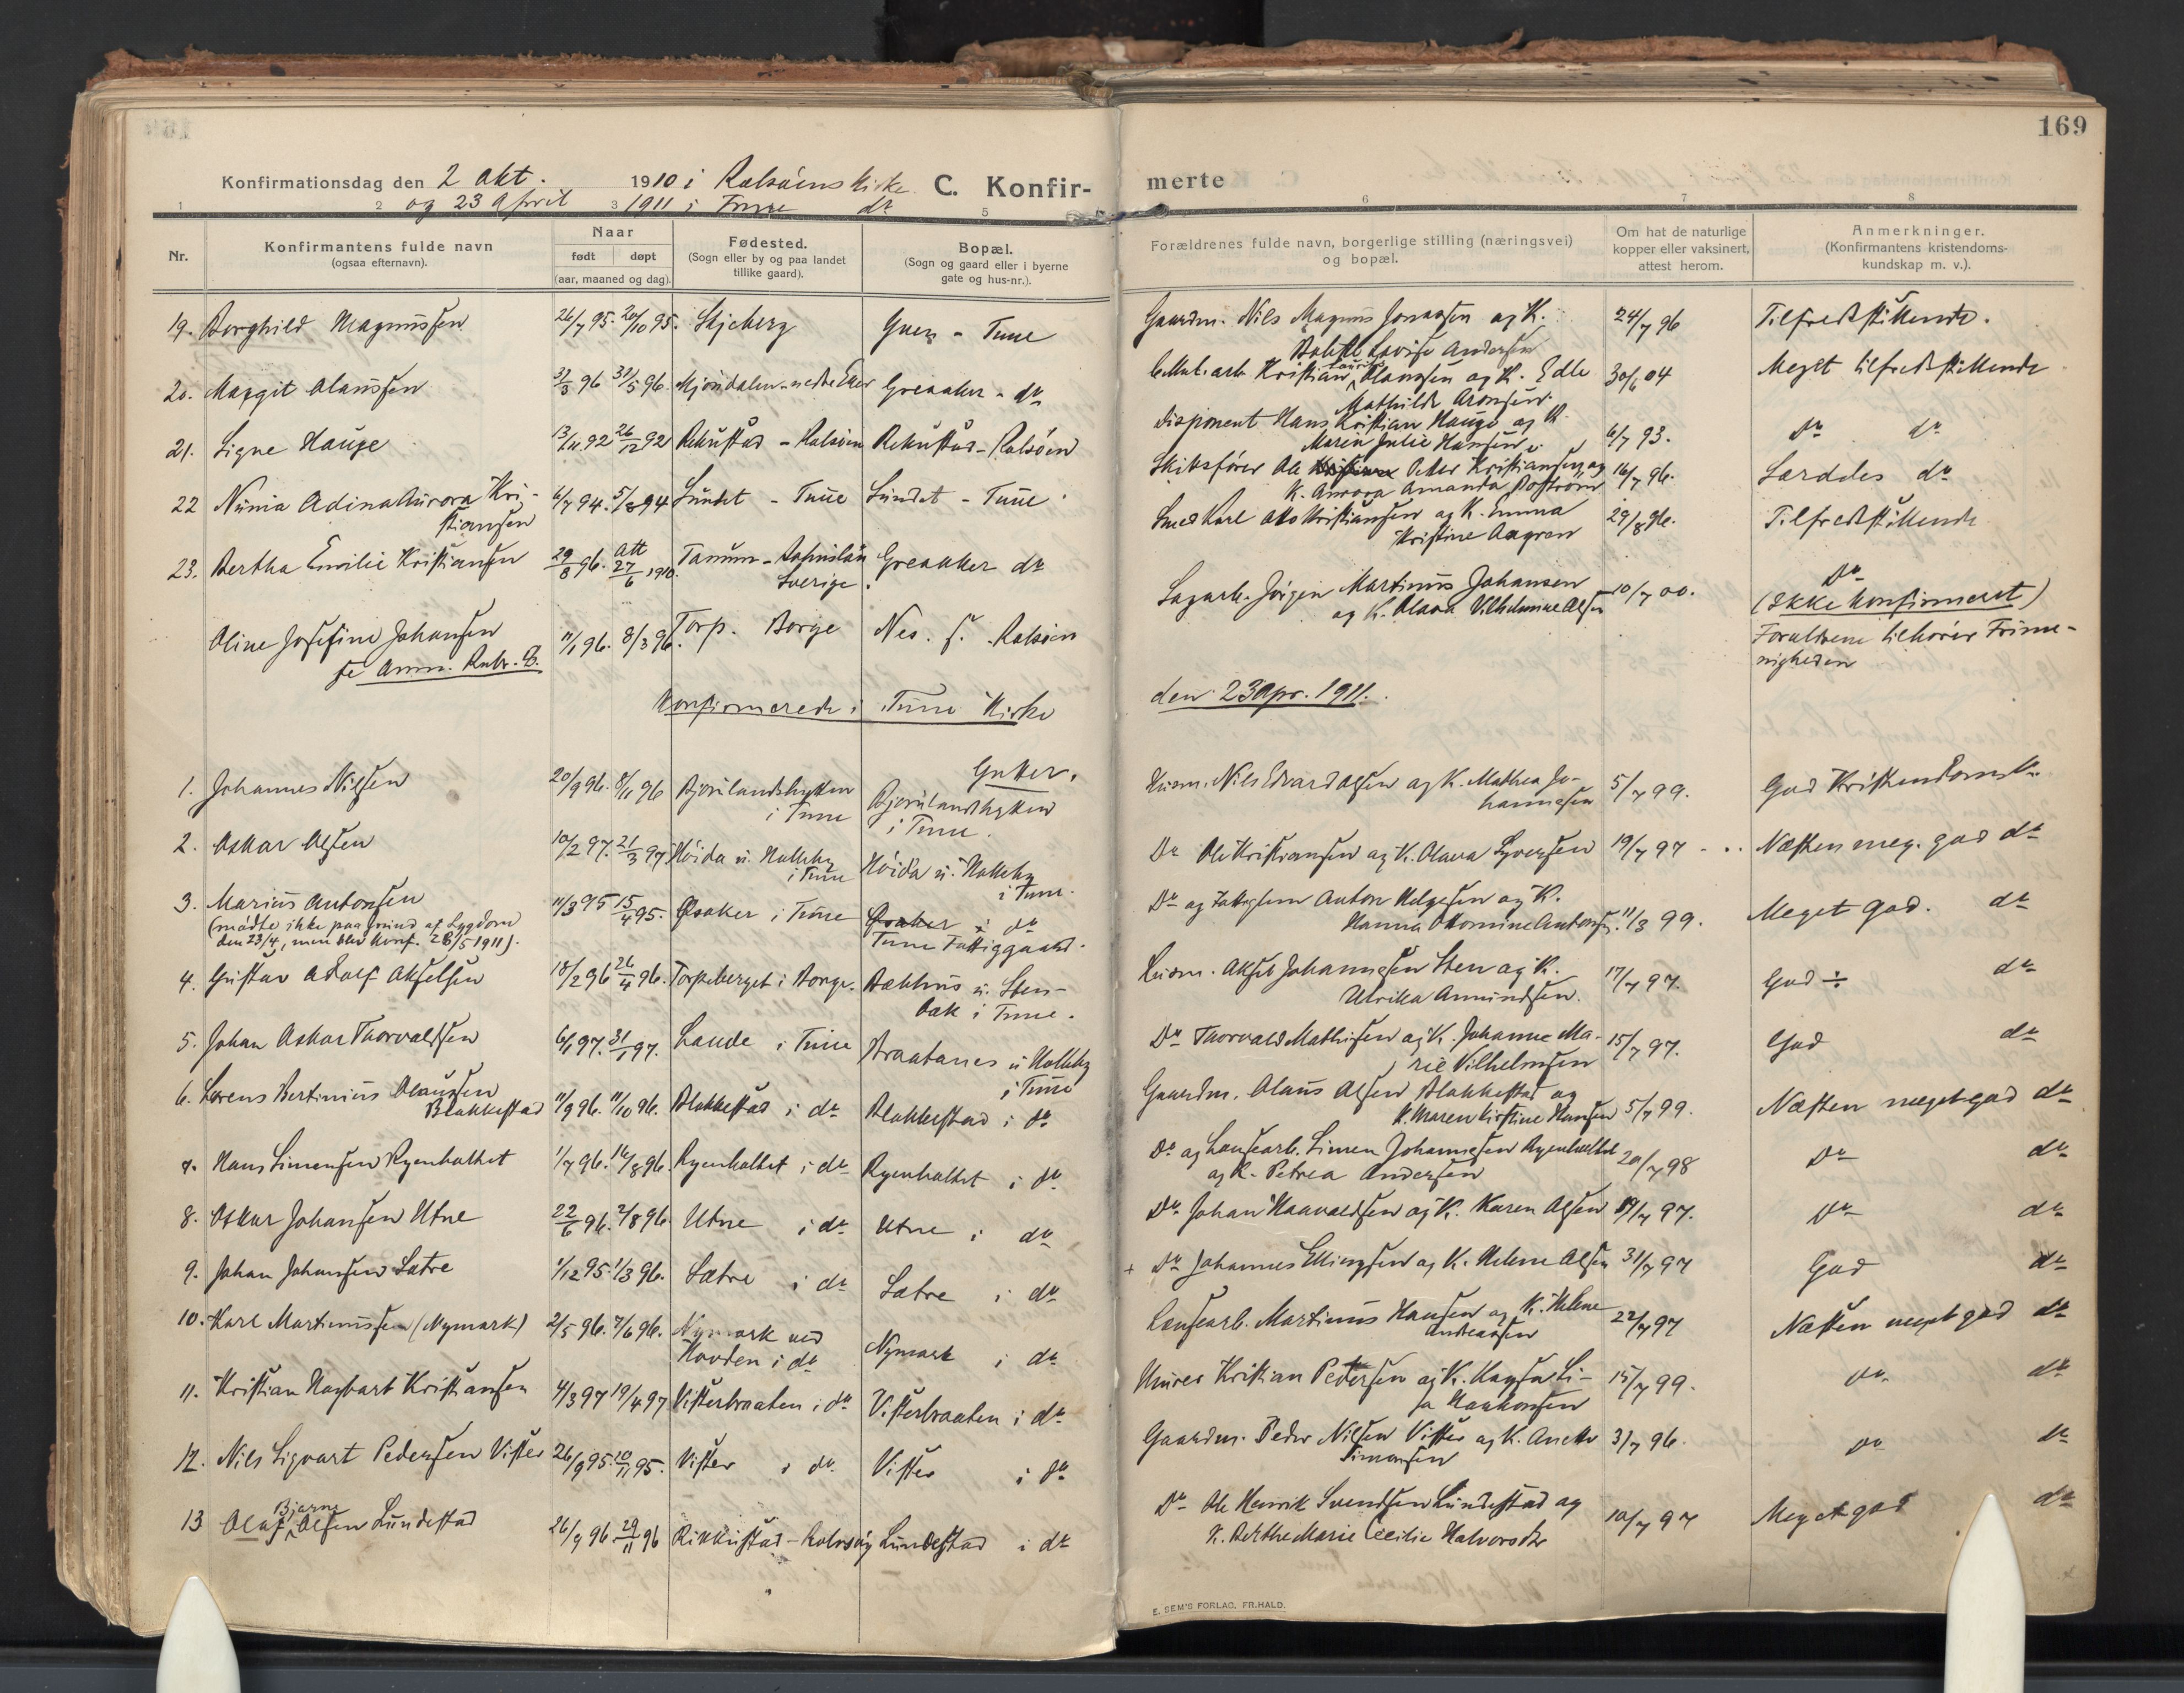 169
Konfirmationsdag den 2 okt. 1910 i Rolsöens Kirke C. Konfir-
og 23 april 1911 i Tune do
merte
1 2 3 5 6 7 8
Nr.
Konfirmantens fulde navn
(ogsaa efternavn).
Naar
født døpt
(aar, maaned og dag).
Fødested.
(Sogn eller by og paa landet
tillike gaard).
Bopæl.
(Sogn og gaard eller i byerne
gate og hus-nr.).
Forældrenes fulde navn, borgerlige stilling (næringsvei)
og bopæl.
Om hat de naturlige
kopper eller vaksinert,
attest herom.
Anmerkninger.
(Konfirmantens kristendoms-
kundskap m. v.).
19. Borghild Magnussen 26/7 95. 20/10 95. Skjeberg Tune Gaardm. Nils Magnus Jonassen og K. 24/7 96 Tilfredsstillende.
Lovise Andersen
20. Margit Olaussen 31/3 96 31/5 96. Mjöndalen - nedre Eker Greaaker - do Kristian Olaussen og K. Edle 30/6 04 Meget tilfredsstillende
Mathilde Aronsen.
21. Signe Hauge 13/11 92 26/12 92 Rekustad - Rolsöen Rekustad - Rolsöen Disponent Hans Kristian Hauge og K. 6/7 93. Do do
Maren Julie Hansen
22 Adina Aurora Kri- 6/7 94. 5/8 94 Sundet - Tune Sundet - Tune Skibsförer Ole Peter Kristiansen og 16/7 96. Særdeles do
stiansen K. Aurora Amanda Boström
23. Bertha Emilie Kristiansen 29/8 96. Att 27/6 1910. Tanum - Sverige. Greaaker do Smed Karl Otto Kristiansen og K. Emma 29/8 96. Tilfredsstillende
Kristine Aagren
Oline Josefine Johansen 11/1 96. 8/3 96. Torp. Borge Nes. Rolsöen Sagarb. Jörgen Martinus Johansen 10/7 00. Do
se Anm. Rubr. 8. og K. Olava Vilhelmine Olsen (Ikke konfirmeret)
Foraldrene tilhörer Frime-
nigheden
Konfirmerede i Tune Kirke den 23 Apr. 1911.
Gutter.
1. Johannes Nilsen 20/9 96. 8/11 96 Bjørnlandshytten Bjørnlandshytten Husm. Nils Edvard Olsen og K. Mathea Jo- 5/7 99. God Kristendomsk.
i Tune i Tune. hannesen
2. Oskar Olsen 10/2 97. 21/3 97. Höida u. Halleby Höida u. Halleby Do Ole Kristiansen og K. Olava Syversen 19/7 97 Næsten meg. god do
i Tune i Tune.
3. Marius Antonsen 11/3 95 15/4 95. Øsaker i Tune Øsaker i do Do og Anton Helgesen og K. 11/3 99. Meget god. do
(mödte ikke paa grund af Sygdom Tune Fattiggaard. Hanna Antonsen.
den 23/4, men blev konf. 28/5 1911).
4. Gustav Adolf Akselsen 18/2 96 26/4 96. Torpeberget i Borge. Bækhus u. Sten- Husm. Aksel Johannesen Sten og K. 17/7 97. God ÷ do
bæk i Tune. Ulrikka Amundsen.
5. Johan Oskar Thorvaldsen 6/1 97. 31/1 97. Lande i Tune Braatanes u. Halleby Do Thorvald Mathisen og K. Johanne Ma- 15/7 97. God do
i Tune rie Vilhelmsen
6. Lorens Bertinius Olaussen 11/9 96. 11/10 96. Blakkestad i do Blakkestad i do Gaardm. Olaus Olsen Blakkestad og 5/7 99. Næsten meget god do
Blakkestad K. Maren Kirstine Hansen
7. Hans Simensen Ryenholtet 1/7 96. 16/8 96. Ryenholtet i do Ryenholtet i do Do og Løsearb. Simen Johannesen Ryenholtet 20/7 98 Do do
og K. Petrea Andersen
8. Oskar Johansen Utne 22/6 96. 2/8 96. Utne i do Utne i do Do Johan Haavaldsen og K. Karen Olsen 19/7 97. Do do
9. Johan Johansen Sætre 1/12 95. 1/3 96. Sætre i do Sætre i do Do Johannes Ellingsen og K. Helene Olsen 31/7 97 God do
10. Karl Martinussen (Nymark) 2/5 96. 7/6 96. Nymark ved Nymark i do Løsearb. Martinus Hansen og K. Helene 22/7 97 Næsten meget god do
Hovden i do Andreassen
11. Kristian Hagbart Kristiansen 4/3 97 19/4 97 Visterbraaten i do Visterbraaten i do Murer Kristian Pedersen og K. Li- 15/7 99. Do do
sa Haakonsen
12. Nils Sigvart Pedersen Vister 26/9 95. 10/11 95. Vister i do Vister i do Gaardm. Peder Nilsen Vister og K. Anette 31/7 96. Do do
Simonsen
13 Olaf Bjarne Olsen Lundestad 26/9 96. 29/11 96 Rekkustad - Rolvsöy Lundestad i do Do Ole Henrik Svendsen Lundestad og 10/7 97 Meget god do
K. Berthe Marie Cecilie Halvorsdtr
E. SEM'S FORLAG, FR.HALD.